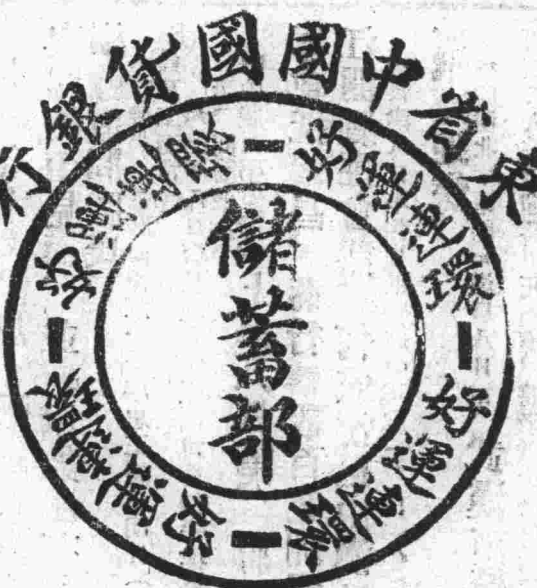 東省中國國貨銀行
好運連環
好運連環
好運連環
好運連環
儲蓄部